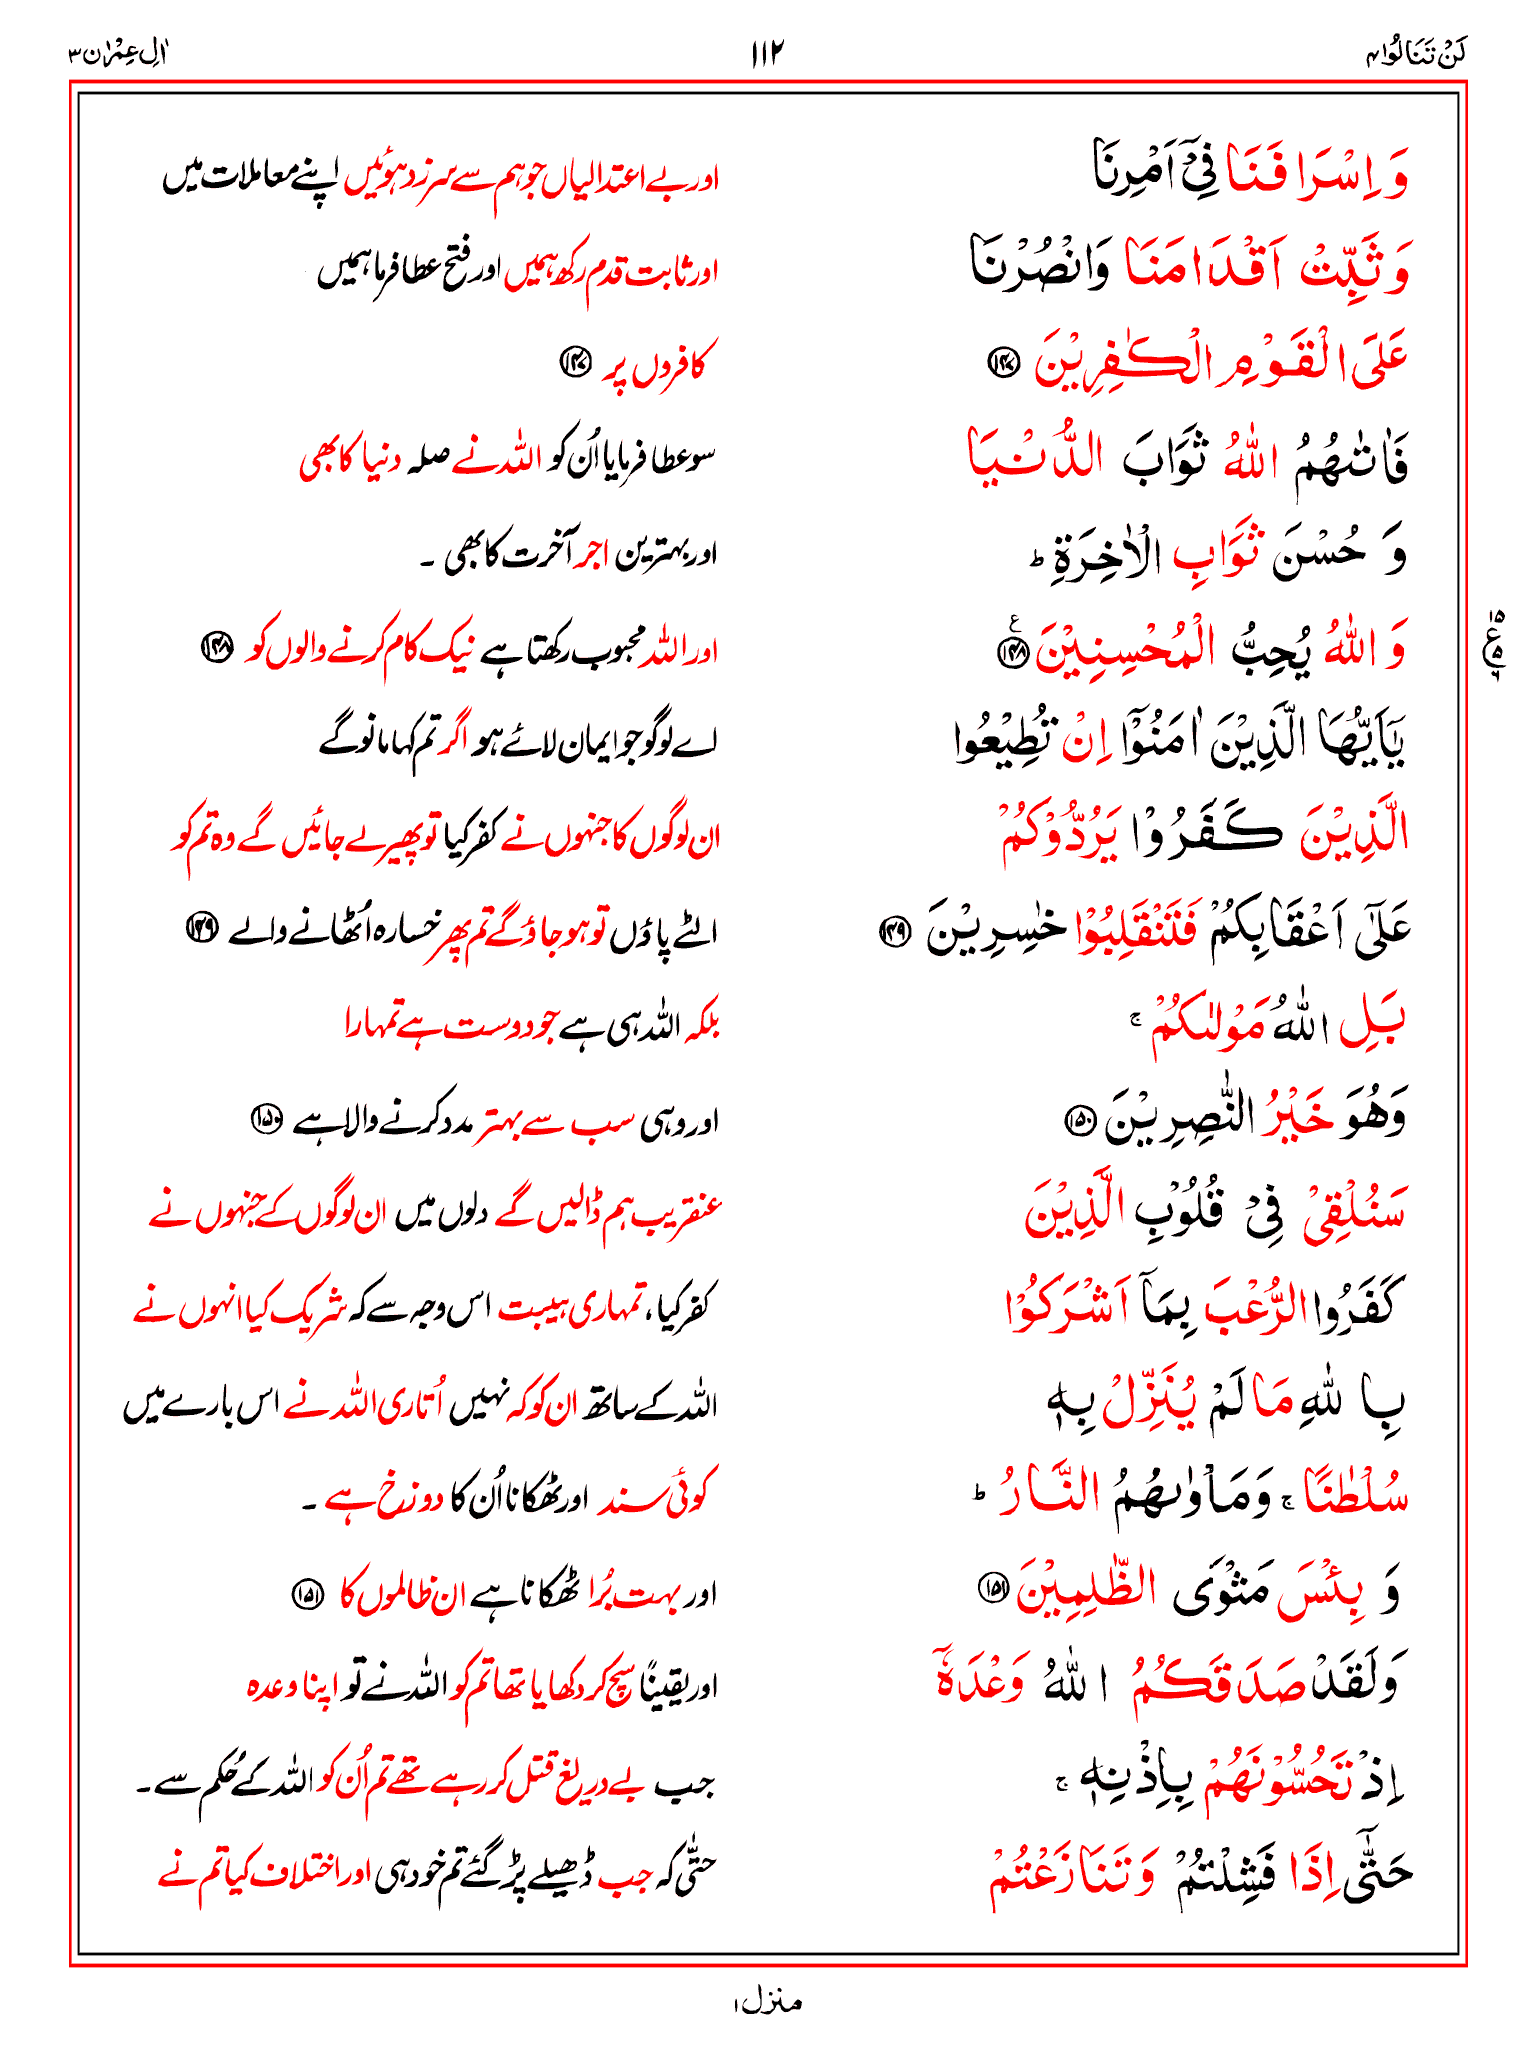 لَنْ تَنَالُوا ۴ ۱۱۲ اٰلِ عِمْرٰن ۳
وَ اِسْرَافَنَا فِیْۤ اَمْرِنَا اور بے اعتدالیاں جو ہم سے سرزد ہوئیں اپنے معاملات میں
وَ ثَبِّتْ اَقْدَامَنَا وَانْصُرْنَا اور ثابت قدم رکھ ہمیں اور فتح عطا فرما ہمیں
عَلَی الْقَوْمِ الْكٰفِرِیْنَ ﴿۱۴۷﴾ کافروں پر ﴿۱۴۷﴾
فَاٰتٰىهُمُ اللّٰهُ ثَوَابَ الدُّنْیَا سو عطا فرمایا اُن کو اللہ نے صلہ دنیا کا بھی
وَ حُسْنَ ثَوَابِ الْاٰخِرَةِ ؕ اور بہترین اجر آخرت کا بھی ۔
وَ اللّٰهُ یُحِبُّ الْمُحْسِنِیْنَ ﴿۱۴۸﴾ ع اور اللہ محبوب رکھتا ہے نیک کام کرنے والوں کو ﴿۱۴۸﴾
۱۵ ع ۵ ۶
یٰۤاَیُّهَا الَّذِیْنَ اٰمَنُوْۤا اِنْ تُطِیْعُوا اے لوگو جو ایمان لائے ہو اگر تم کہا مانو گے
الَّذِیْنَ كَفَرُوْا یَرُدُّوْكُمْ ان لوگوں کا جنہوں نے کفر کیا تو پھیر لے جائیں گے وہ تم کو
عَلٰۤی اَعْقَابِكُمْ فَتَنْقَلِبُوْا خٰسِرِیْنَ ﴿۱۴۹﴾ الٹے پاؤں تو ہو جاؤ گے تم پھر خسارہ اُٹھانے والے ﴿۱۴۹﴾
بَلِ اللّٰهُ مَوْلٰىكُمْ ۚ بلکہ اللہ ہی ہے جو دوست ہے تمہارا
وَهُوَ خَیْرُ النّٰصِرِیْنَ ﴿۱۵۰﴾ اور وہی سب سے بہتر مدد کرنے والا ہے ﴿۱۵۰﴾
سَنُلْقِیْ فِیْ قُلُوْبِ الَّذِیْنَ عنقریب ہم ڈالیں گے دلوں میں ان لوگوں کے جنہوں نے
كَفَرُوا الرُّعْبَ بِمَاۤ اَشْرَكُوْا کفر کیا، تمہاری ہیبت اس وجہ سے کہ شریک کیا انہوں نے
بِاللّٰهِ مَا لَمْ یُنَزِّلْ بِهٖ اللہ کے ساتھ ان کو کہ نہیں اُتاری اللہ نے اس بارے میں
سُلْطٰنًا ۚ وَمَاْوٰىهُمُ النَّارُ ؕ کوئی سند اور ٹھکانا اُن کا دوزخ ہے ۔
وَ بِئْسَ مَثْوَی الظّٰلِمِیْنَ ﴿۱۵۱﴾ اور بہت بُرا ٹھکانا ہے ان ظالموں کا ﴿۱۵۱﴾
وَلَقَدْ صَدَقَكُمُ اللّٰهُ وَعْدَهٗۤ اور یقیناً سچ کر دکھایا تھا تم کو اللہ نے تو اپنا وعدہ
اِذْ تَحُسُّوْنَهُمْ بِاِذْنِهٖ ۚ جب بے دریغ قتل کر رہے تھے تم اُن کو اللہ کے حُکم سے ۔
حَتّٰۤی اِذَا فَشِلْتُمْ وَتَنَازَعْتُمْ حتّٰی کہ جب ڈھیلے پڑ گئے تم خود ہی اور اختلاف کیا تم نے
منزل ۱